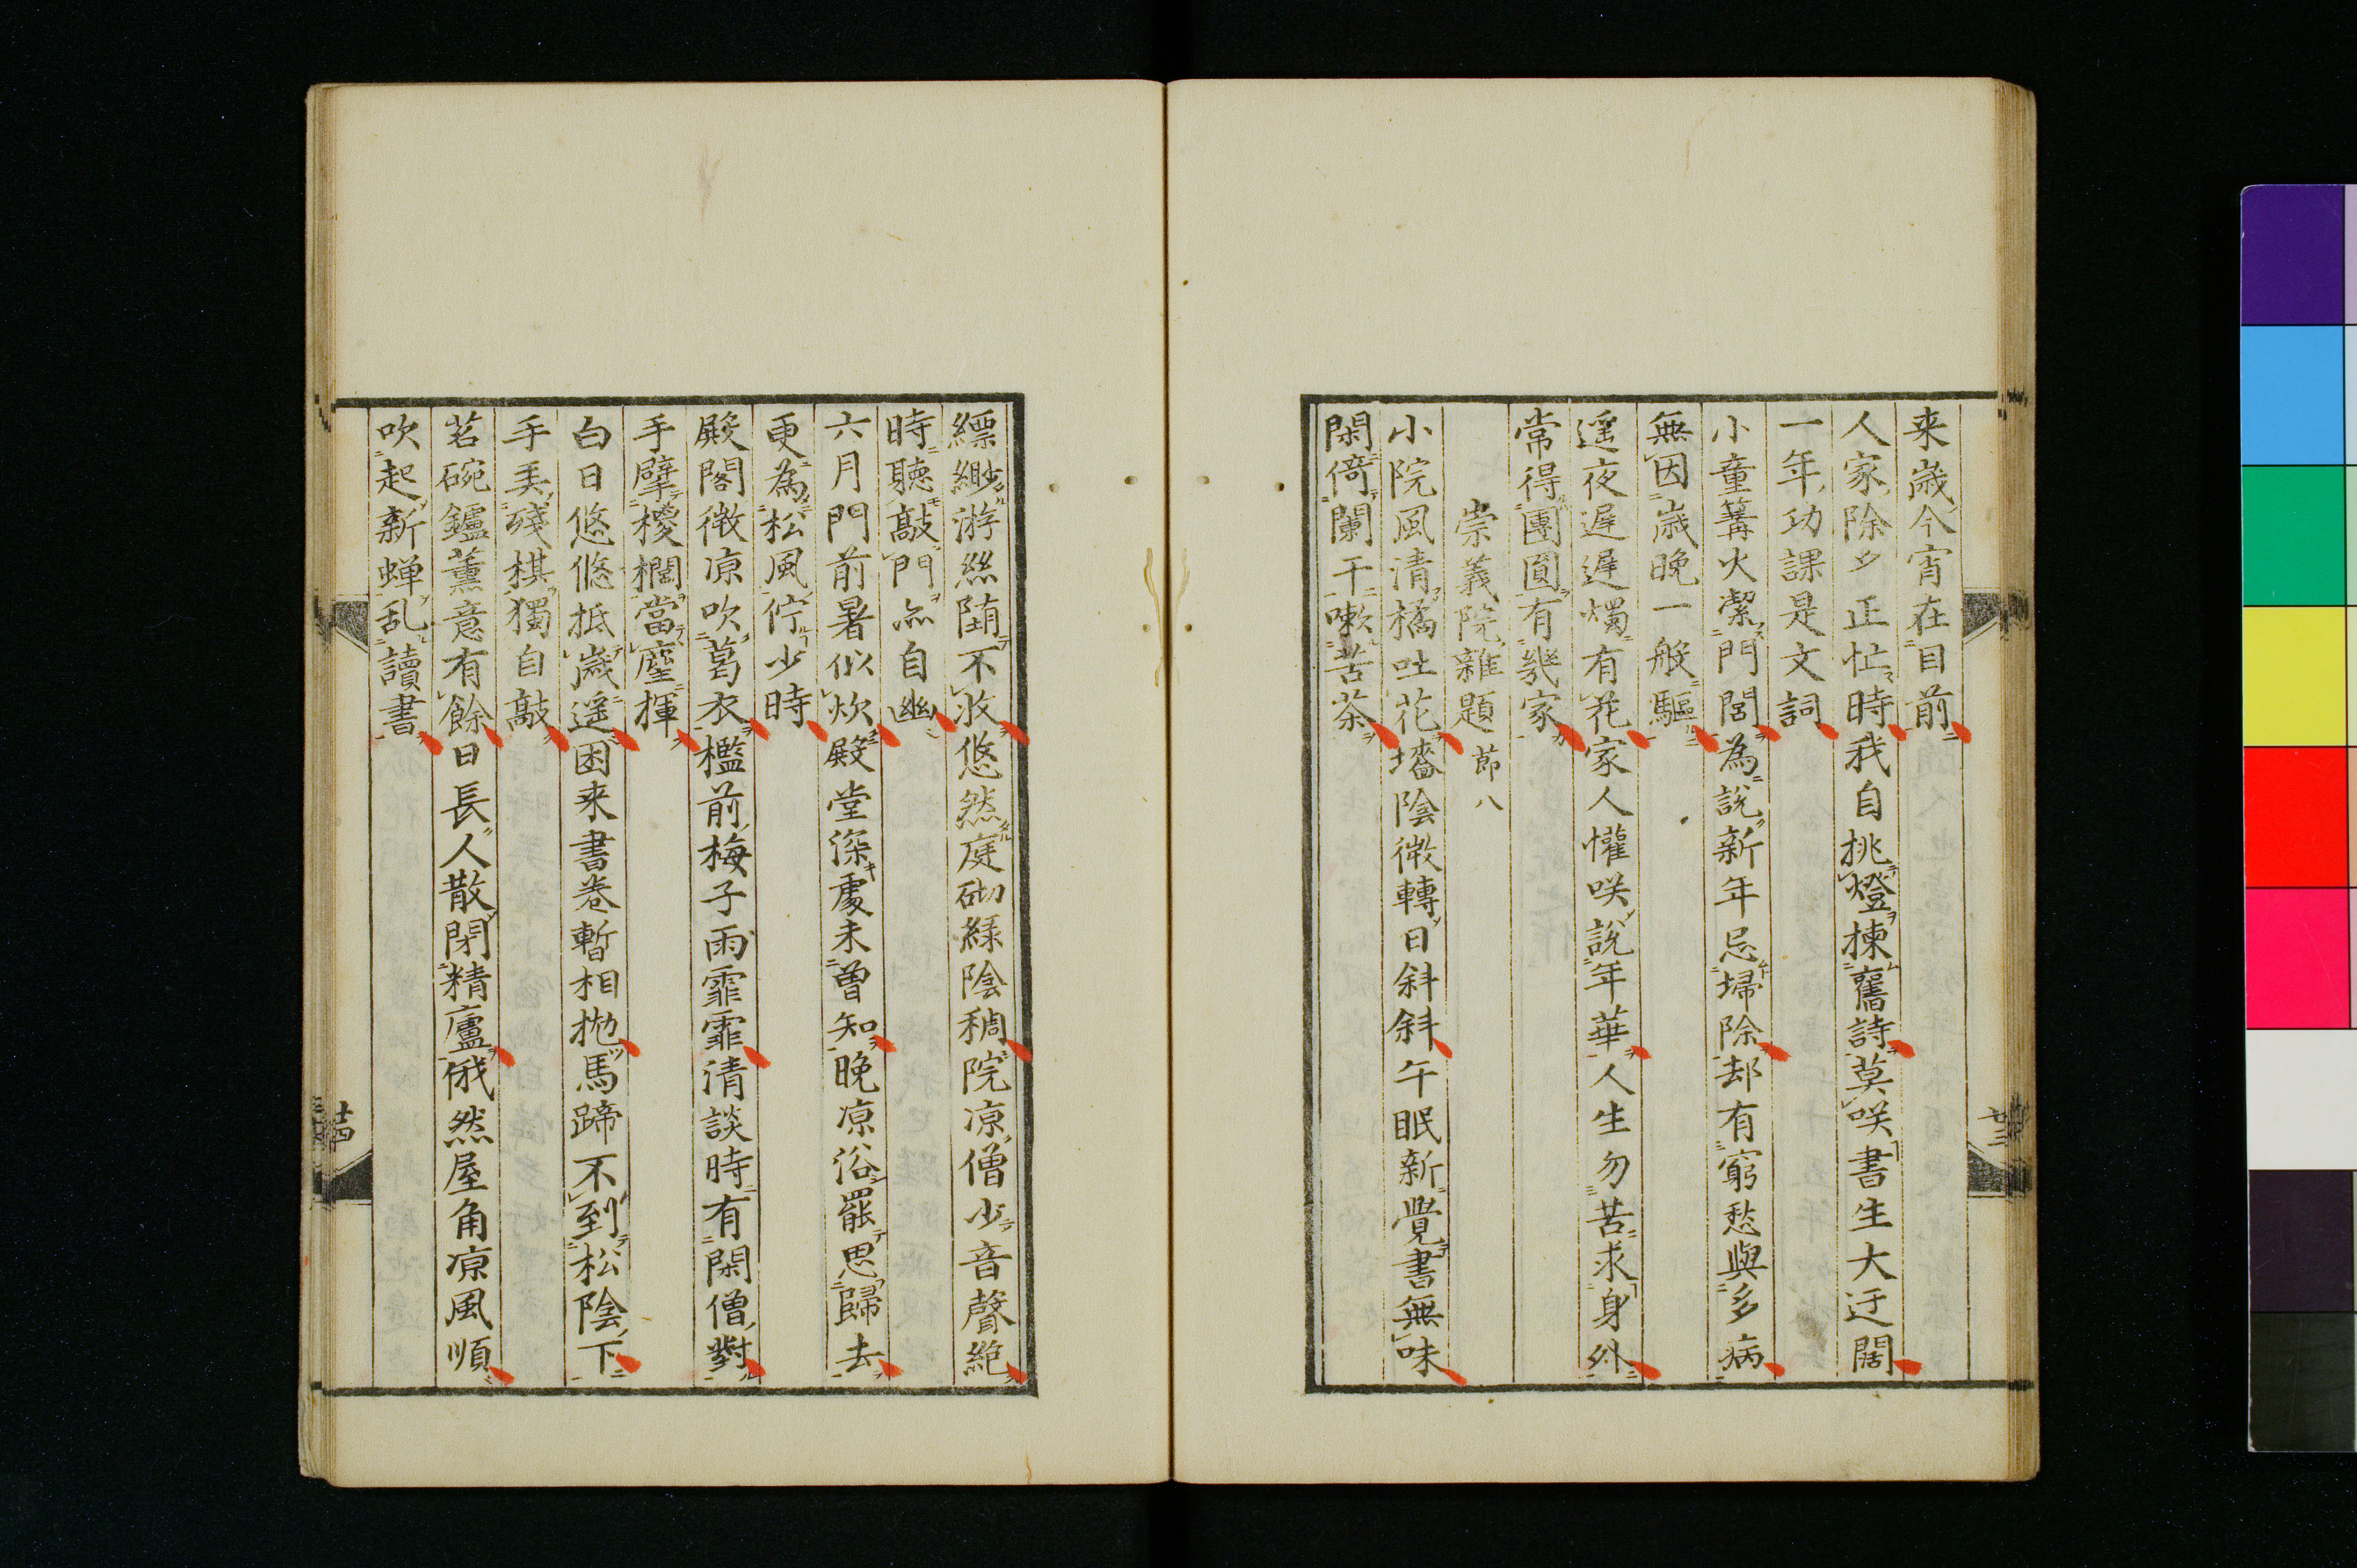 来歳今宵在目前
人家除夕正忙時我自挑燈揀舊詩莫咲書生大迂闊
一年功課是文詞
小童篝火潔門閭為說新年忌埽除却有窮愁與多病
無因歳晩一般驅
遥夜遲遲燭有花家人懽咲說年華人生勿苦求身外
常得團圓有幾家
崇義院雜題 莭八
小院風清橘吐花墻陰微轉日斜斜午眠新覺書無味
閑倚闌干嗽苦茶
縹緲游絲墮不收悠然庭砌緑陰稠院凉僧少音聲絶
時聽敲門亦自幽
六月門前暑似炊殿堂深處未曾知晩凉浴罷思歸去
更為松風佇少時
殿閣微凉吹葛衣檻前梅子雨霏霏清談時有閑僧對
手擘椶櫚當麈揮
白日悠悠抵歳遥困来書巻暫相抛馬蹄不到松陰下
手弄殘棋獨自敲
茗碗鑪薫意有餘日長人散閉精廬俄然屋角凉風順
吹起新蝉乱讀書
廿三
廿四